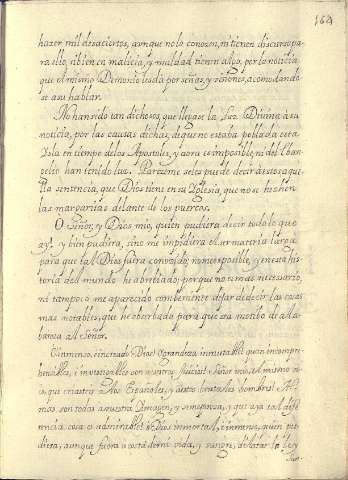 164
hazer mil desaciertos, aunque no la conosen, ni tienen discurso pa-
ra ello, si bien en malicia, y maldad tienen algo, por la noticia
que el mismo Demonio les da por señas, y visiones, acomodando
se a su hablar.
No han sido tan dichosos, que llegase la Luz Divina a su
noticia, por las causas dichas, de que no estaba poblada esta
Isla en tiempo de los Apostoles, y aora es imposible, ni del Eban-
gelio han tenido luz. Pareceme se les puede decir a estos aque-
lla sentencia, que Dios tiene en su Iglesia, que no se hechen
las margaritas delante de los puercos.
O Señor, y Dios mio, quien pudiera decir todo lo que
ay! y bien pudiera, sino me impidiera el ser materia larga
para que tal Dios fuera conocido, no
toria del mundo he abreviado; porque no era mas necessario,
ni tampoco me a parecido combeniente dejar de decir las cosas
mas notables, que he obserbado para que sea motibo de ala-
banza al Señor.
O inmenso, e increado Dios! O grandeza inmutable! quan incompre-
hensible, e investigable son vuestros Juicios! Señor mio, el mismo so
is, que criasteis a los Españoles, y a estos brutales hombres! Al-
mas son todas a vuestra Imagen, y semejanza, y que aya tal dife-
rencia, cosa es admirable! O Dios inmortal, e inmenso, quien pu-
diera, aunque fuera a costa de mi vida, y sangre, dilatar la Ley